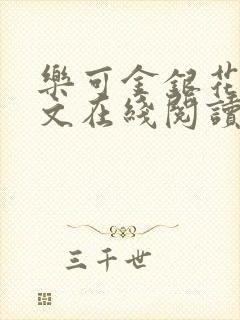 樂可金銀花
文在綫閱讀
三千世